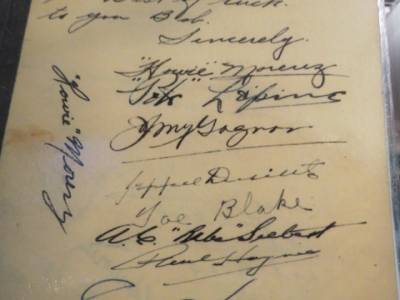 of luck.
to you Bob.
Sincerely.
"Howie" Morenz
"Pit" Lepine
Johnny Gagnon
Toe Blake
A.C. "Babe" Siebert
Paul Haynes
"Howie" Morenz